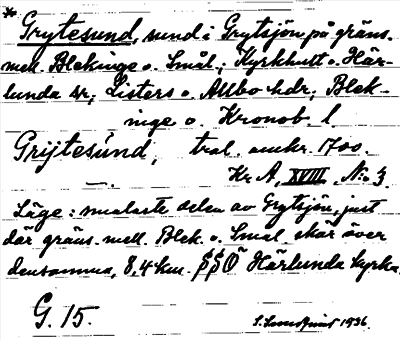 * Grytesund, sund i Grytsjön på gräns.
mell. Blekinge o. Smål.; Kyrkhult o. Här-
lunda sr; Listers o. Allbo hdr; Blek-
inge o. Kronob. l.
Grijtesúnd, tral. omkr. 1700.
Kr. A, XVIII, No 3
Läge: smalaste delen av Grytsjön, just
där gräns. mell. Blek. o. Smål. skär över
densamma, 8,4 km. SSÖ Härlunda kyrka.
G. 15.
1936